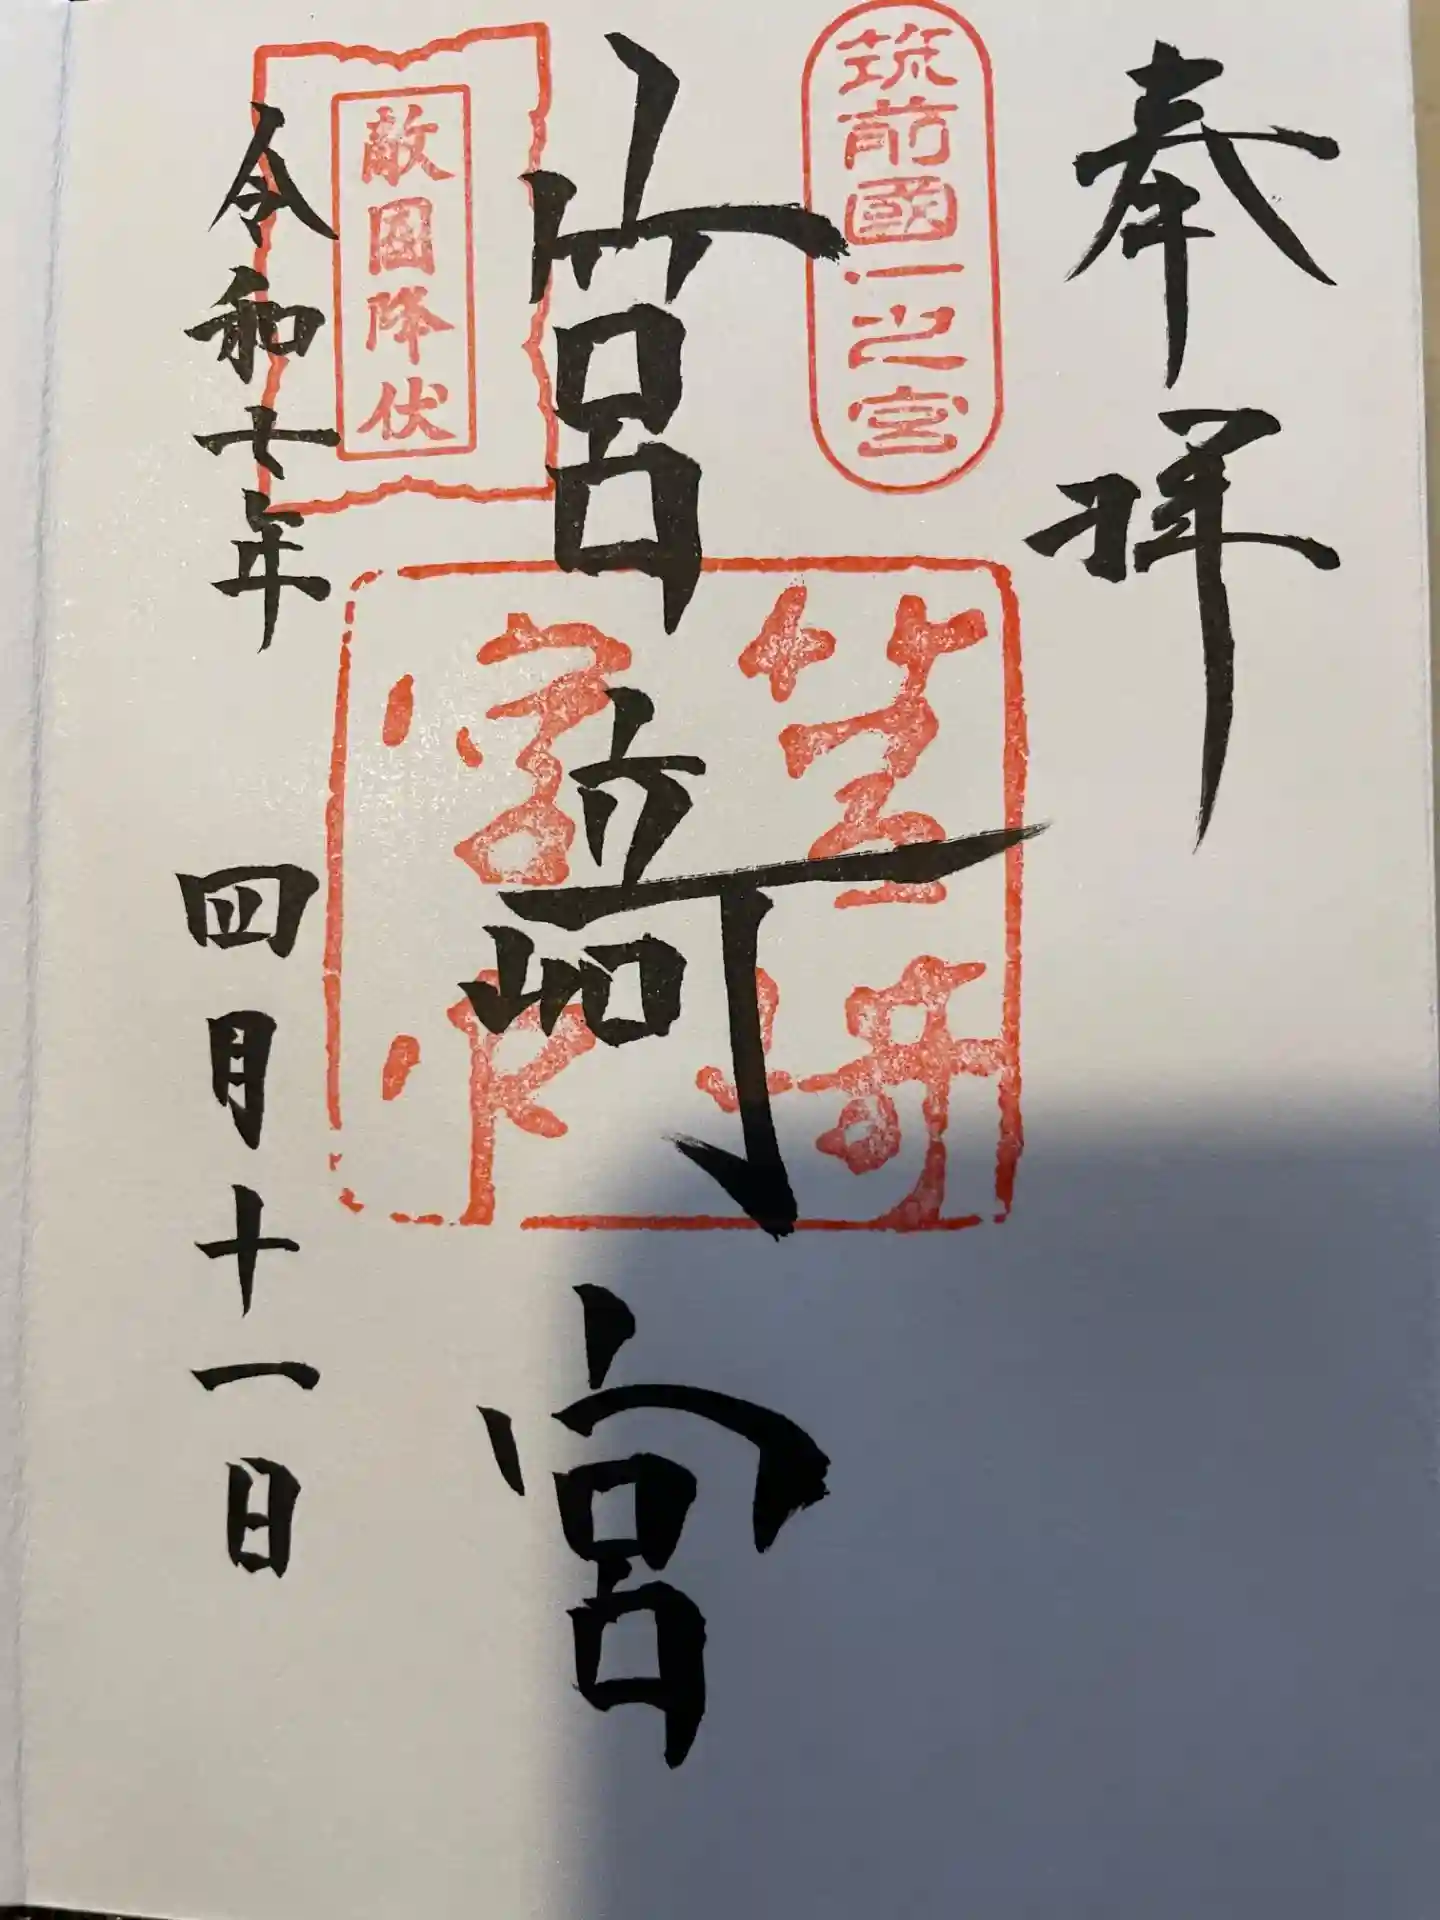 奉拝
筑前國一之宮
筥﨑宮
敵國降伏
令和七年四月十一日